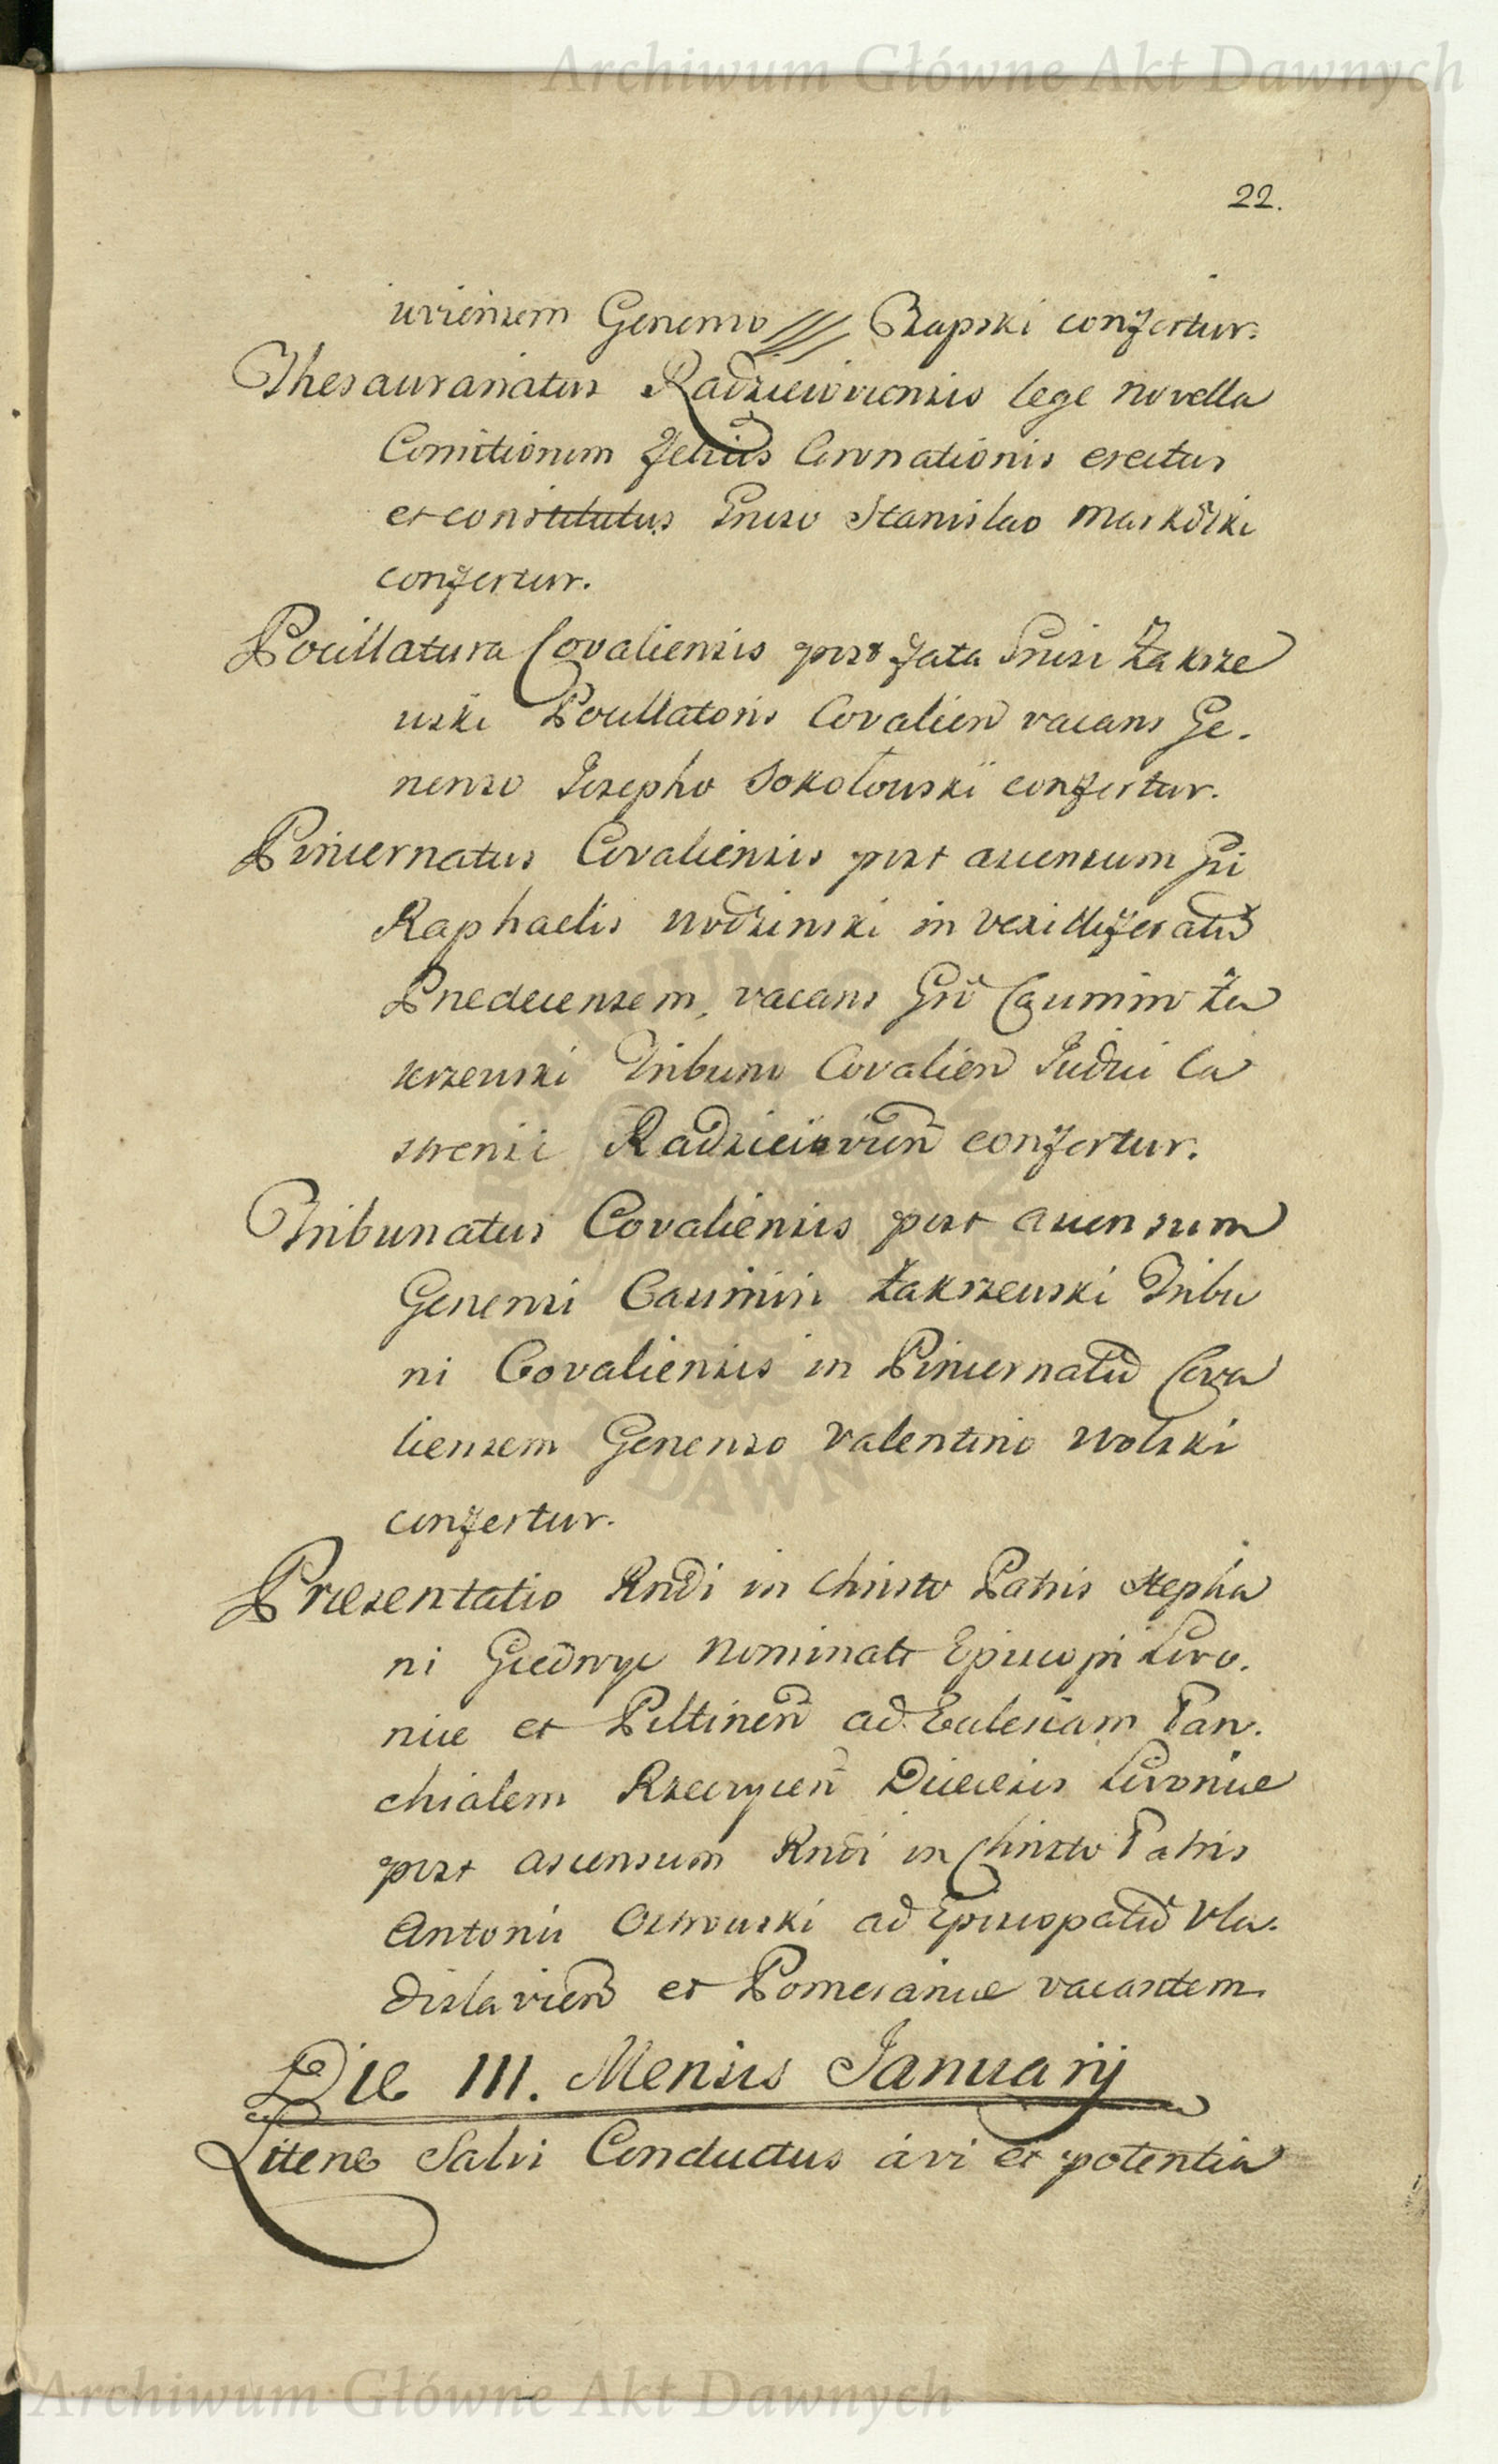 Archiwum Główne Akt Dawnych
22.
viensem Generoso /// Rzapski confertur.
Thesaurariatus Radzieioviensis lege novella
Comitiorum felicis Coronationis erectus
et constitutus Gneroso Stanislao Markoski
confertur.
Pocillatura Covaliensis post fata Gnrosi Zakrze
wski Pocillatoris Covalien vacans Ge.
neroso Josepho Sokołowski confertur.
Pincernatus Covaliensis post ascensum Gsi
Raphaelis Wodzinski in Vexilliferatũ
Przedecensem, vacans Gsõ Casimiro Za
krzewski Tribuno Covalien Judici Ca
strensi Radzieiovien confertur.
Tribunatus Covaliensis post ascensum
Generosi Casimiri Zakrzewski Tribu
ni Covaliensis in Pincernatũ Cova
liensem Generoso Valentino Wolski
confertur.
Præsentatio Rndi in Christo Patris Stepha
ni Giedroyc Nominati Episcopi Livo.
niæ et Piltinen ad Ecclesiam Paro.
chialem Rzeczycen Diæcesis Livoniæ
post ascensum Rndi in Christo Patris
Antonii Ostrowski ad Episcopatũ Vla.
dislavien et Pomeraniæ vacantem.
Die III. Mensis Januarij
Literæ Salvi Conductus à vi et potentia
Archiwum Główne Akt Dawnych